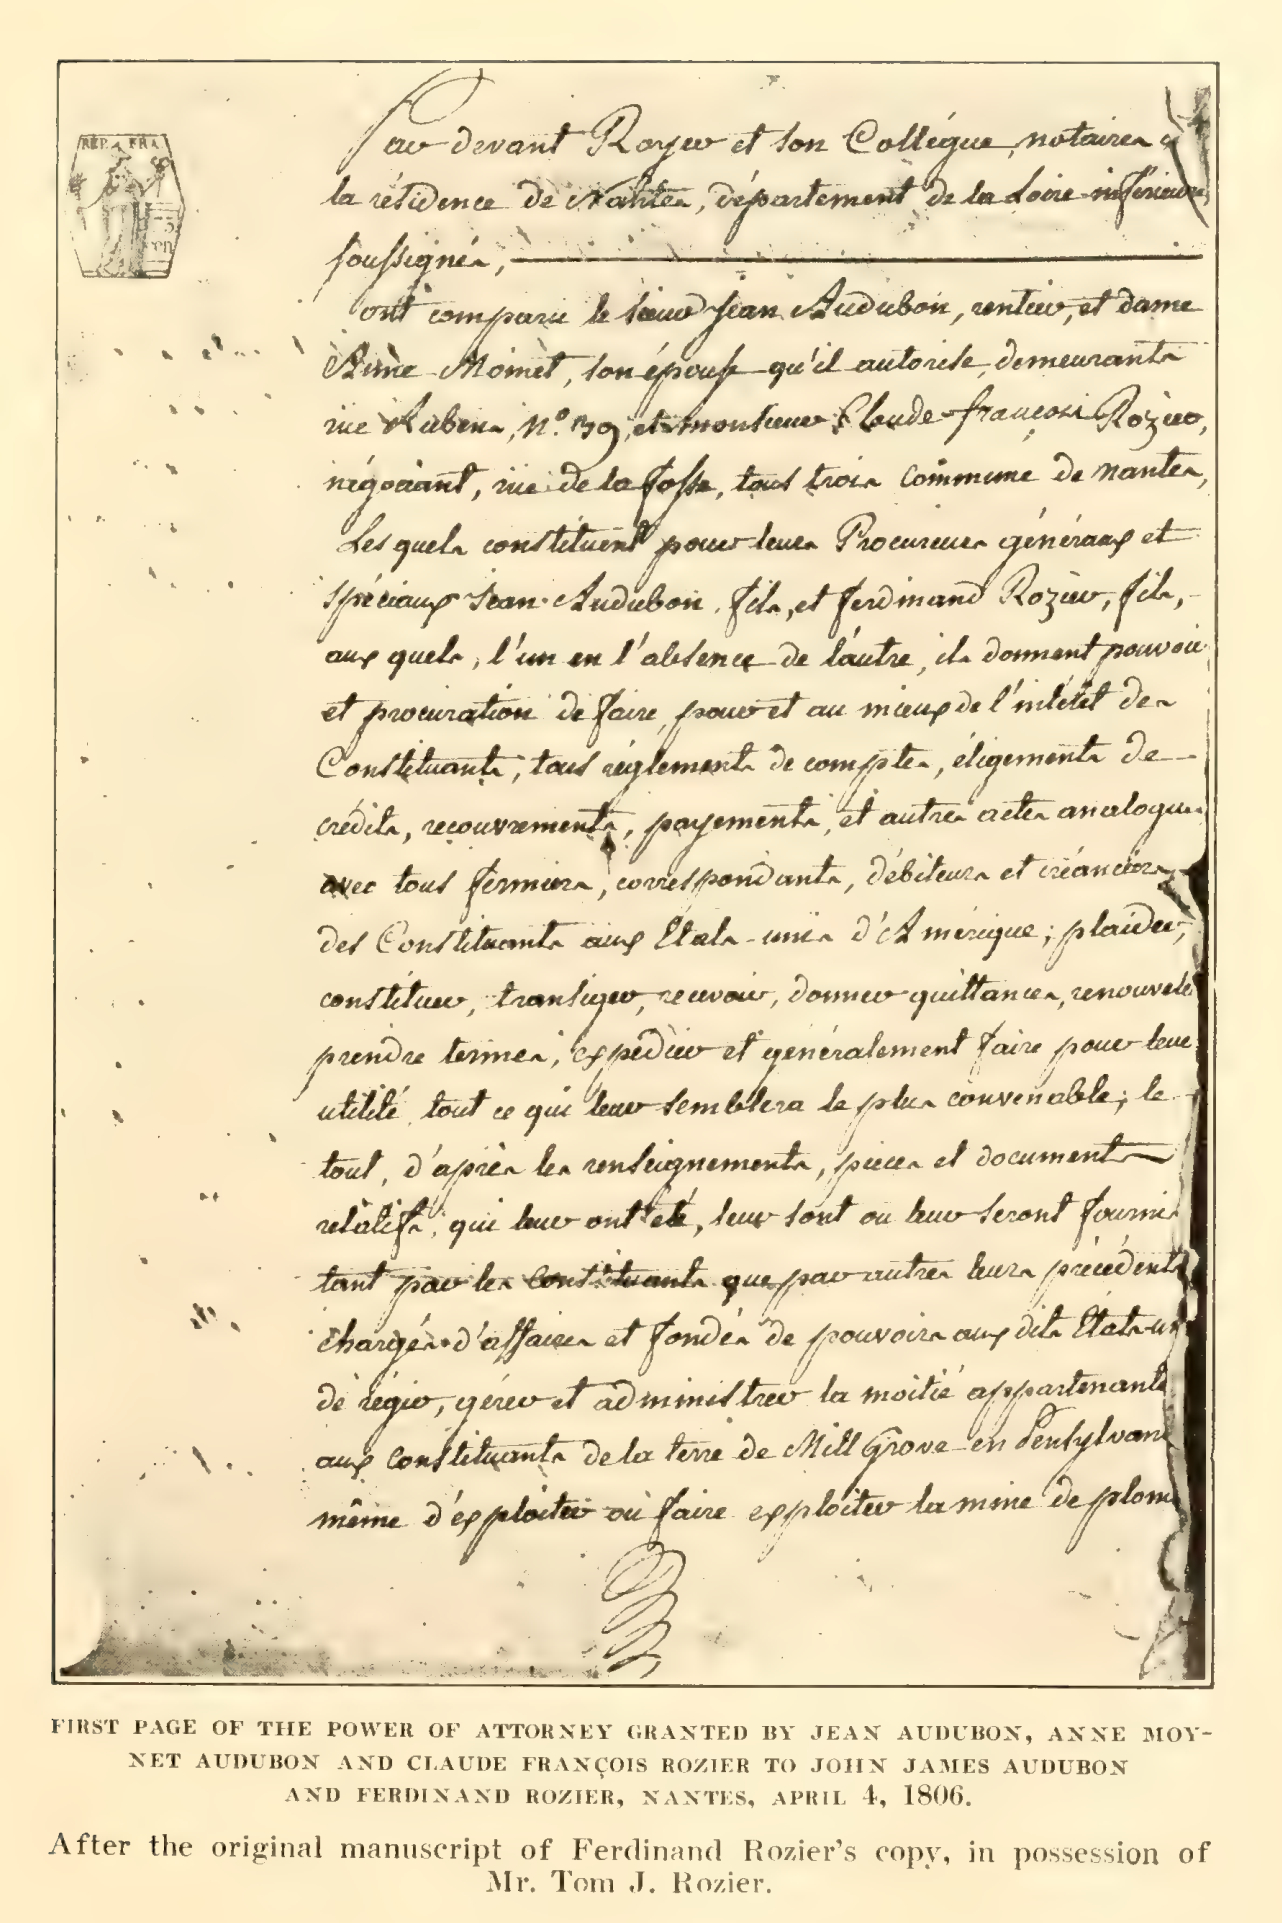 REP. FRA
Par devant Royer et son Collégue, notaires à
la résidence de Nantes, département de la Loire inférieure
soussignés,
ont comparu le sieur Jean Audubon, rentier, et dame
Anne Moinet, son épouse qu'il autorise, demeurants
rue Rubens, N.° 39, et monsieur Claude françois Rozier,
négociant, rue de la fosse, tous trois commune de nantes,
Les quels constituent pour leurs Procureurs généraux et
spéciaux Jean Audubon, fils, et ferdinand Rozier, fils,
aux quels, l'un en l'absence de l'autre, ils donnent pouvoir
et procuration de faire, pour et au mieux de l'intérêt des
Constituants, tous réglements de comptes, éligements de
crédits, recouvrements, payements, et autres actes analogues
avec tous fermiers, correspondants, débiteurs et créanciers
des Constituants aux Etats-unis d'Amérique; plaider,
constituer, transiger, recevoir, donner quittances, renouveler
prendre termes, expédier et généralement faire pour leur
utilité tout ce qui leur semblera le plus convenable; le
tout, d'après les renseignements, pièces et documents
relatifs, qui leur ont été, leur sont ou leur seront fournis
tant par les Constituants que par autres leurs précédents
chargés d'affaires et fondés de pouvoirs aux dits Etats-un
de régir, gérer et administrer la moitié appartenante
aux constituants de la terre de Mill Grove en Pensylvan
même d'exploiter ou faire exploiter la mine de plom
FIRST PAGE OF THE POWER OF ATTORNEY GRANTED BY JEAN AUDUBON, ANNE MOY-
NET AUDUBON AND CLAUDE FRANÇOIS ROZIER TO JOHN JAMES AUDUBON
AND FERDINAND ROZIER, NANTES, APRIL 4, 1806.
After the original manuscript of Ferdinand Rozier's copy, in possession of
Mr. Tom J. Rozier.